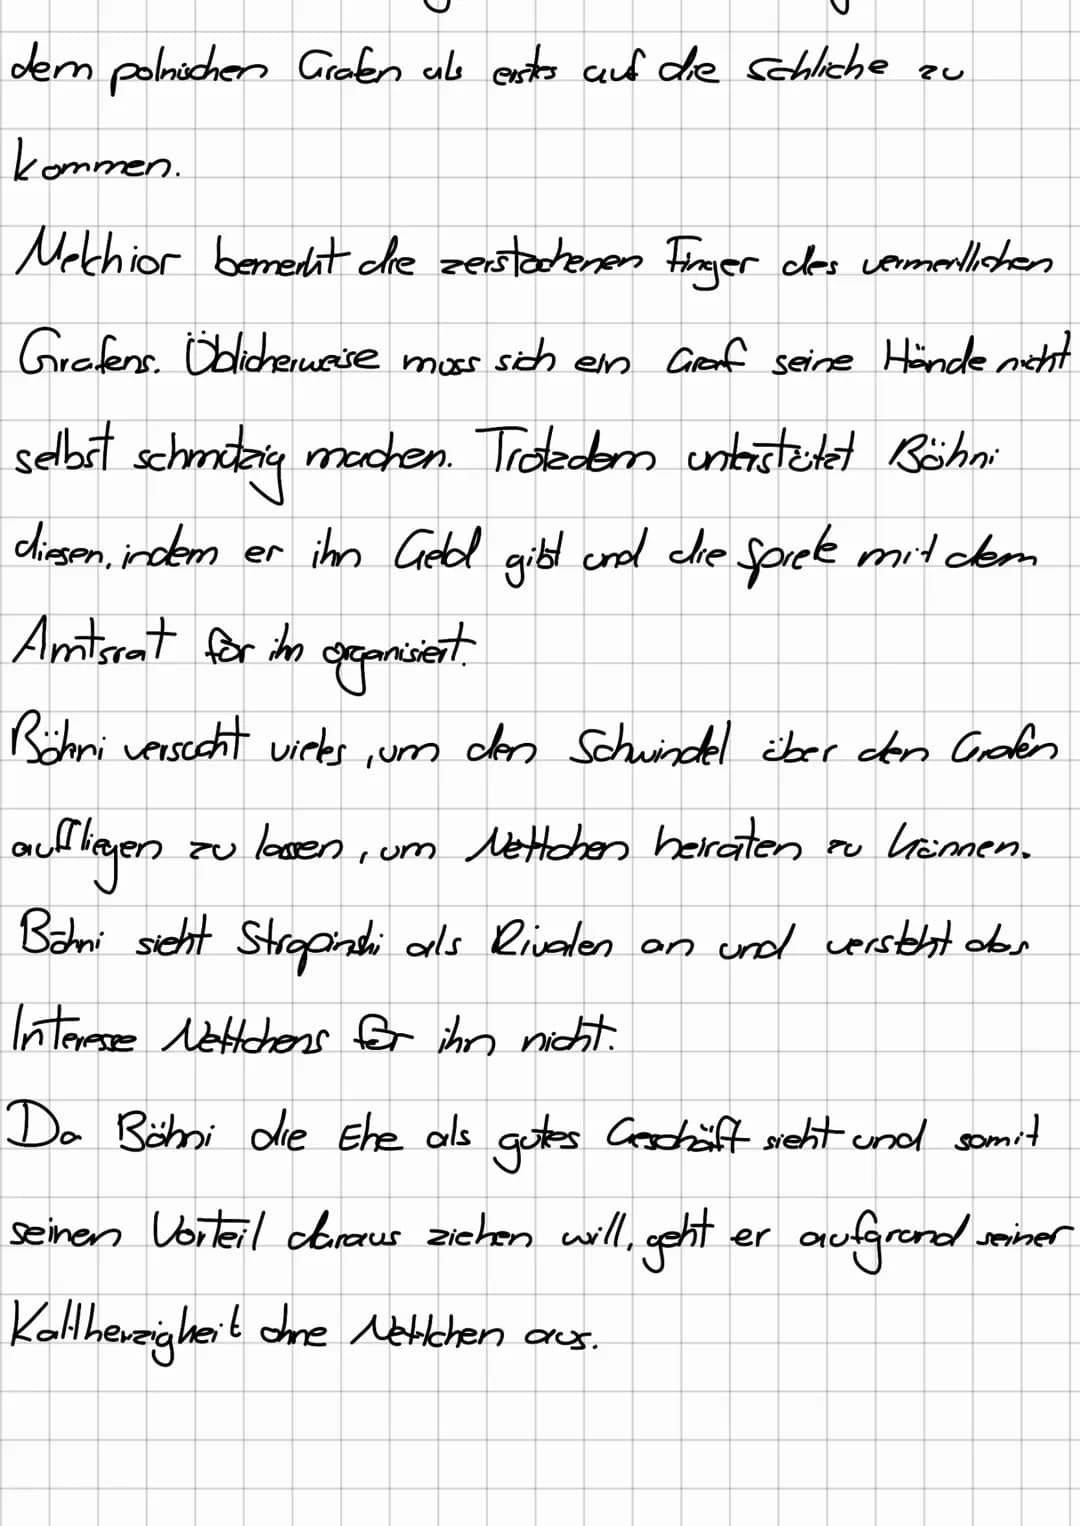 dem polnischen Grafen als erstes auf die schliche zu
kommen.
Melchior bemerkt die zerstochenen Finger des vermeintlichen
Grafens. Üblicherweise muss sich ein Graf seine Hände nicht
selbst schmutzig machen. Trotzdem unterstützt Böhni
diesen, indem er ihn Geld gibt und die Spiele mit dem
Amtsrat für ihn organisiert.
Böhni versucht vieles, um den Schwindel über den Grafen
auffliegen zu lassen, um Nettchen heiraten zu können.
Böhni sieht Strapinski als Rivalen an und versteht das
Interesse Nettchens für ihn nicht.
Da Böhni die Ehe als gutes Geschäft sieht und somit
seinen Vorteil daraus ziehen will, geht er aufgrund seiner
Kaltherzigkeit ohne Nettchen aus.